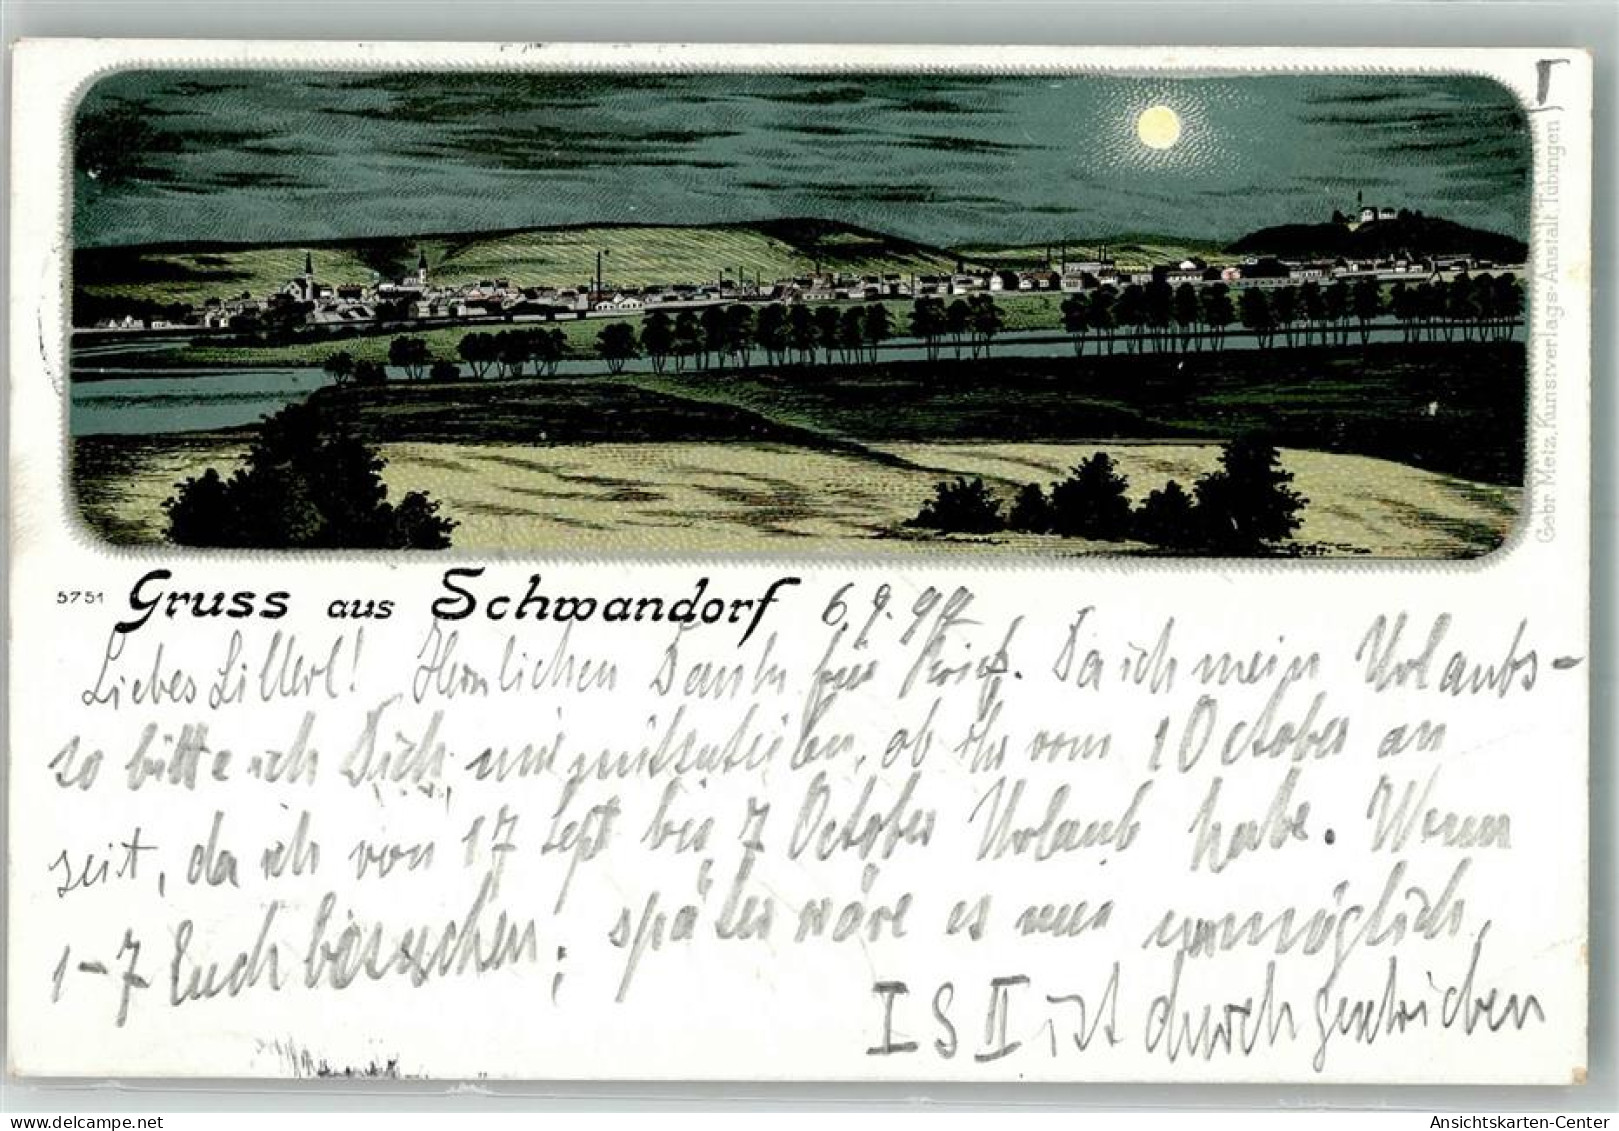 Gebr Metz, Kunstverlags-Anstalt, Tübingen
5751 Gruss aus Schwandorf 6.9.97
Liebes Lillerl! Herzlichen Dank für Brief. Da ich mein Urlaubs-
so bitte ich Dich, mir mitzuteilen, ob ihr vom 1 October an
zeit, da ich von 17 Sept bis 7 October Urlaub habe. Wenn
1-7 Euch besuchen; später wäre es mir unmöglich,
I S II ist durchgestrichen
delcampe.net
Ansichtskarten-Center